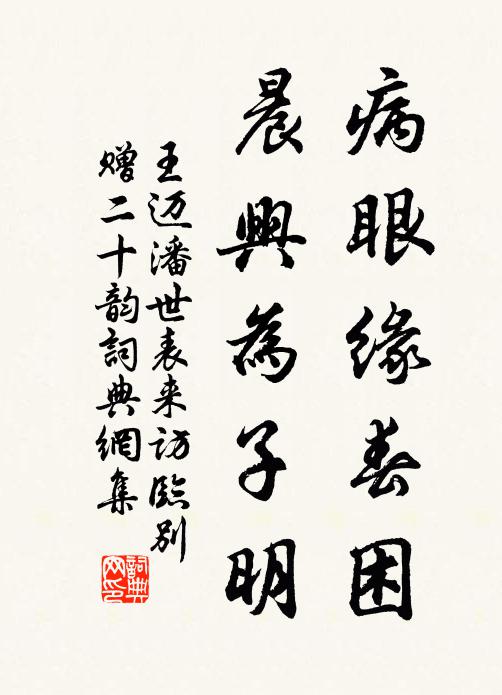 病眼缘春困
晨興為子明
王迈潘世表来访臨别
赠二十韵詞典網集
詞典
网印